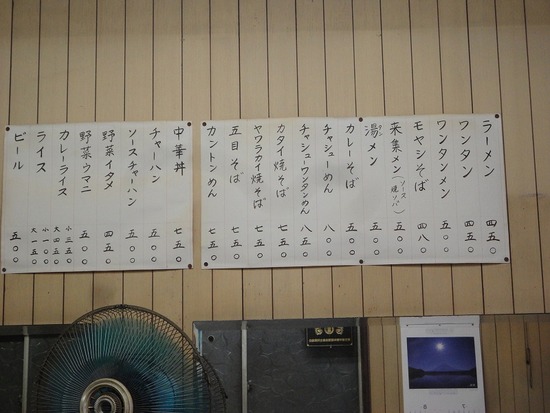 ラーメン 四五〇
ワンタン 四五〇
ワンタンメン 五〇〇
モヤシそば 四八〇
来集メン(ソース焼ソバ) 五〇〇
湯メン 五〇〇
タン
カレーそば 五〇〇
チャシューめん 八〇〇
チャシューワンタンめん 八五〇
カタイ焼そば 七五〇
ヤワラカイ焼そば 七五〇
五目そば 七五〇
カントンめん 七五〇
中華丼 七五〇
チャーハン 五〇〇
ソースチャーハン 五五〇
野菜イタメ 四五〇
野菜ウマニ 五〇〇
カレーライス 小三五〇 大四五〇
ライス 小一〇〇 大一五〇
ビール 五〇〇